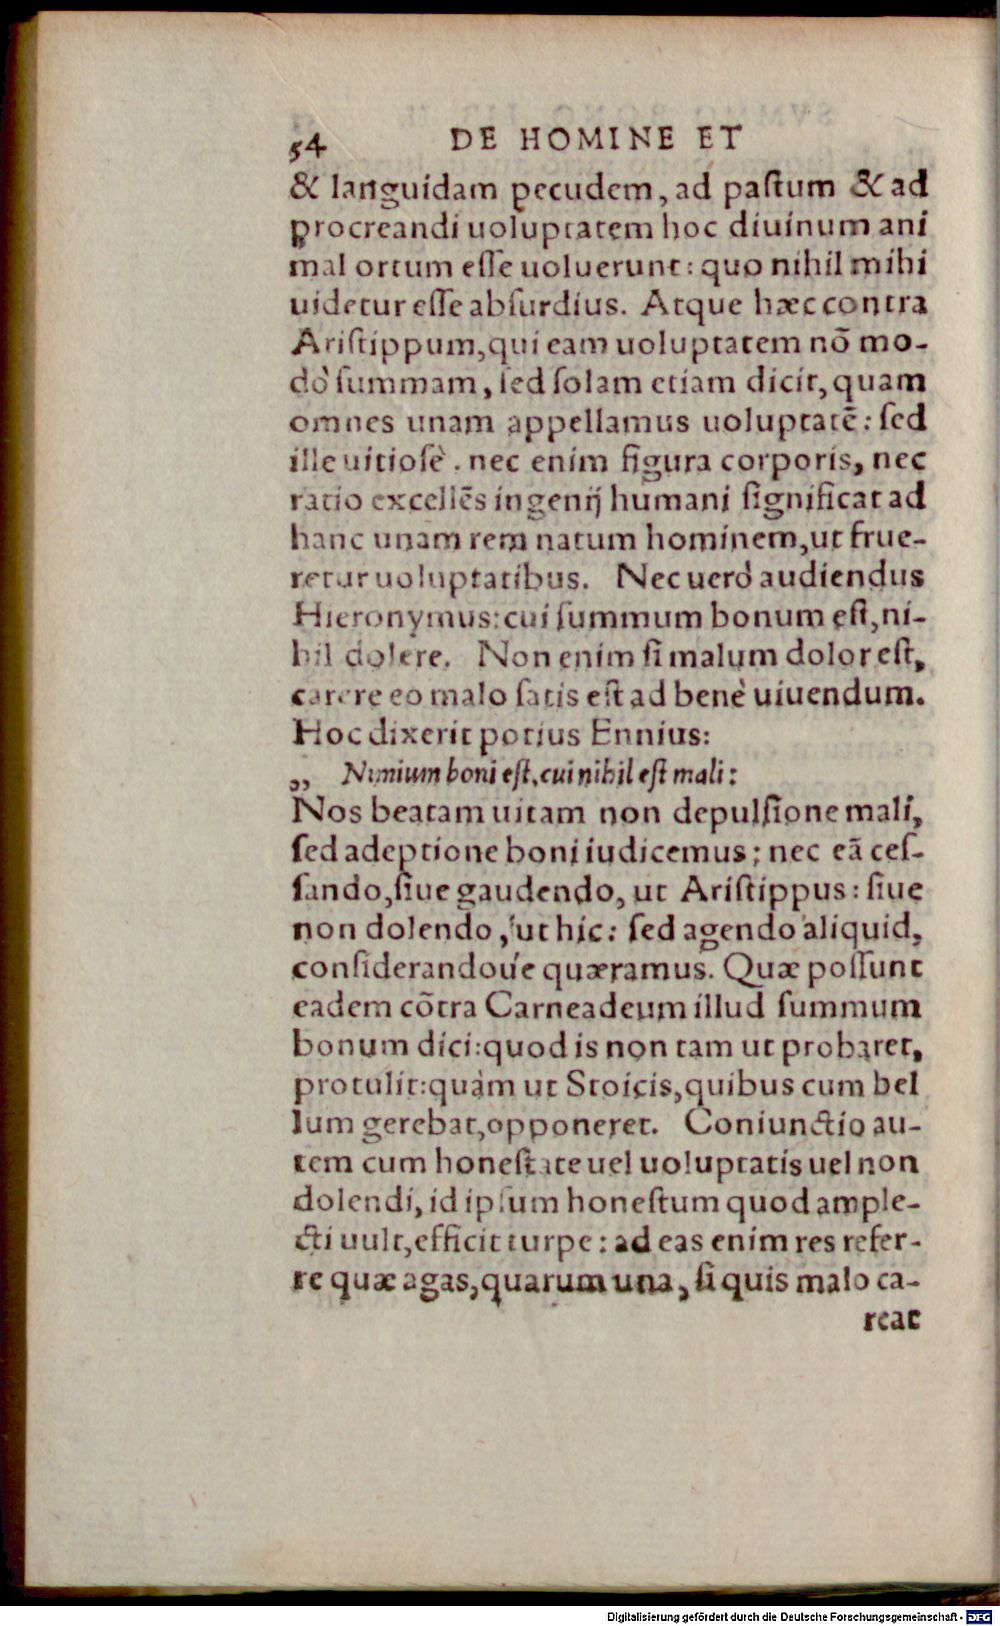 54 DE HOMINE ET
& languidam pecudem, ad paſtum & ad
procreandi uoluptatem hoc diuinum ani
mal ortum eſſe uoluerunt: quo nihil mihi
uidetur eſſe abſurdius. Atque hæc contra
Ariſtippum, qui eam uoluptatem nõ mo-
dò ſummam, ſed ſolam etiam dicit, quam
omnes unam appellamus uoluptatẽ: ſed
ille uitioſè. nec enim figura corporis, nec
ratio excellẽs ingenij humani ſignificat ad
hanc unam rem natum hominem, ut frue-
retur uoluptatibus. Nec uerò audiendus
Hieronymus: cui ſummum bonum eſt, ni-
hil dolere. Non enim ſi malum dolor eſt,
carere eo malo ſatis eſt ad benè uiuendum.
Hoc dixerit potius Ennius:
„ Nimium boni eſt, cui nihil eſt mali:
Nos beatam uitam non depulſione mali,
ſed adeptione boni iudicemus; nec eã ceſ-
ſando, ſiue gaudendo, ut Ariſtippus: ſiue
non dolendo, ut hic: ſed agendo aliquid,
conſiderandoúe quæramus. Quæ poſſunt
eadem cõtra Carneadeum illud ſummum
bonum dici: quod is non tam ut probaret,
protulit: quàm ut Stoicis, quibus cum bel
lum gerebat, opponeret. Coniunctio au-
tem cum honeſtate uel uoluptatis uel non
dolendi, id ipſum honeſtum quod ample-
cti uult, efficit turpe: ad eas enim res refer-
re quæ agas, quarum una, ſi quis malo ca-
reat
Digitalisierung gefördert durch die Deutsche Forschungsgemeinschaft - DFG